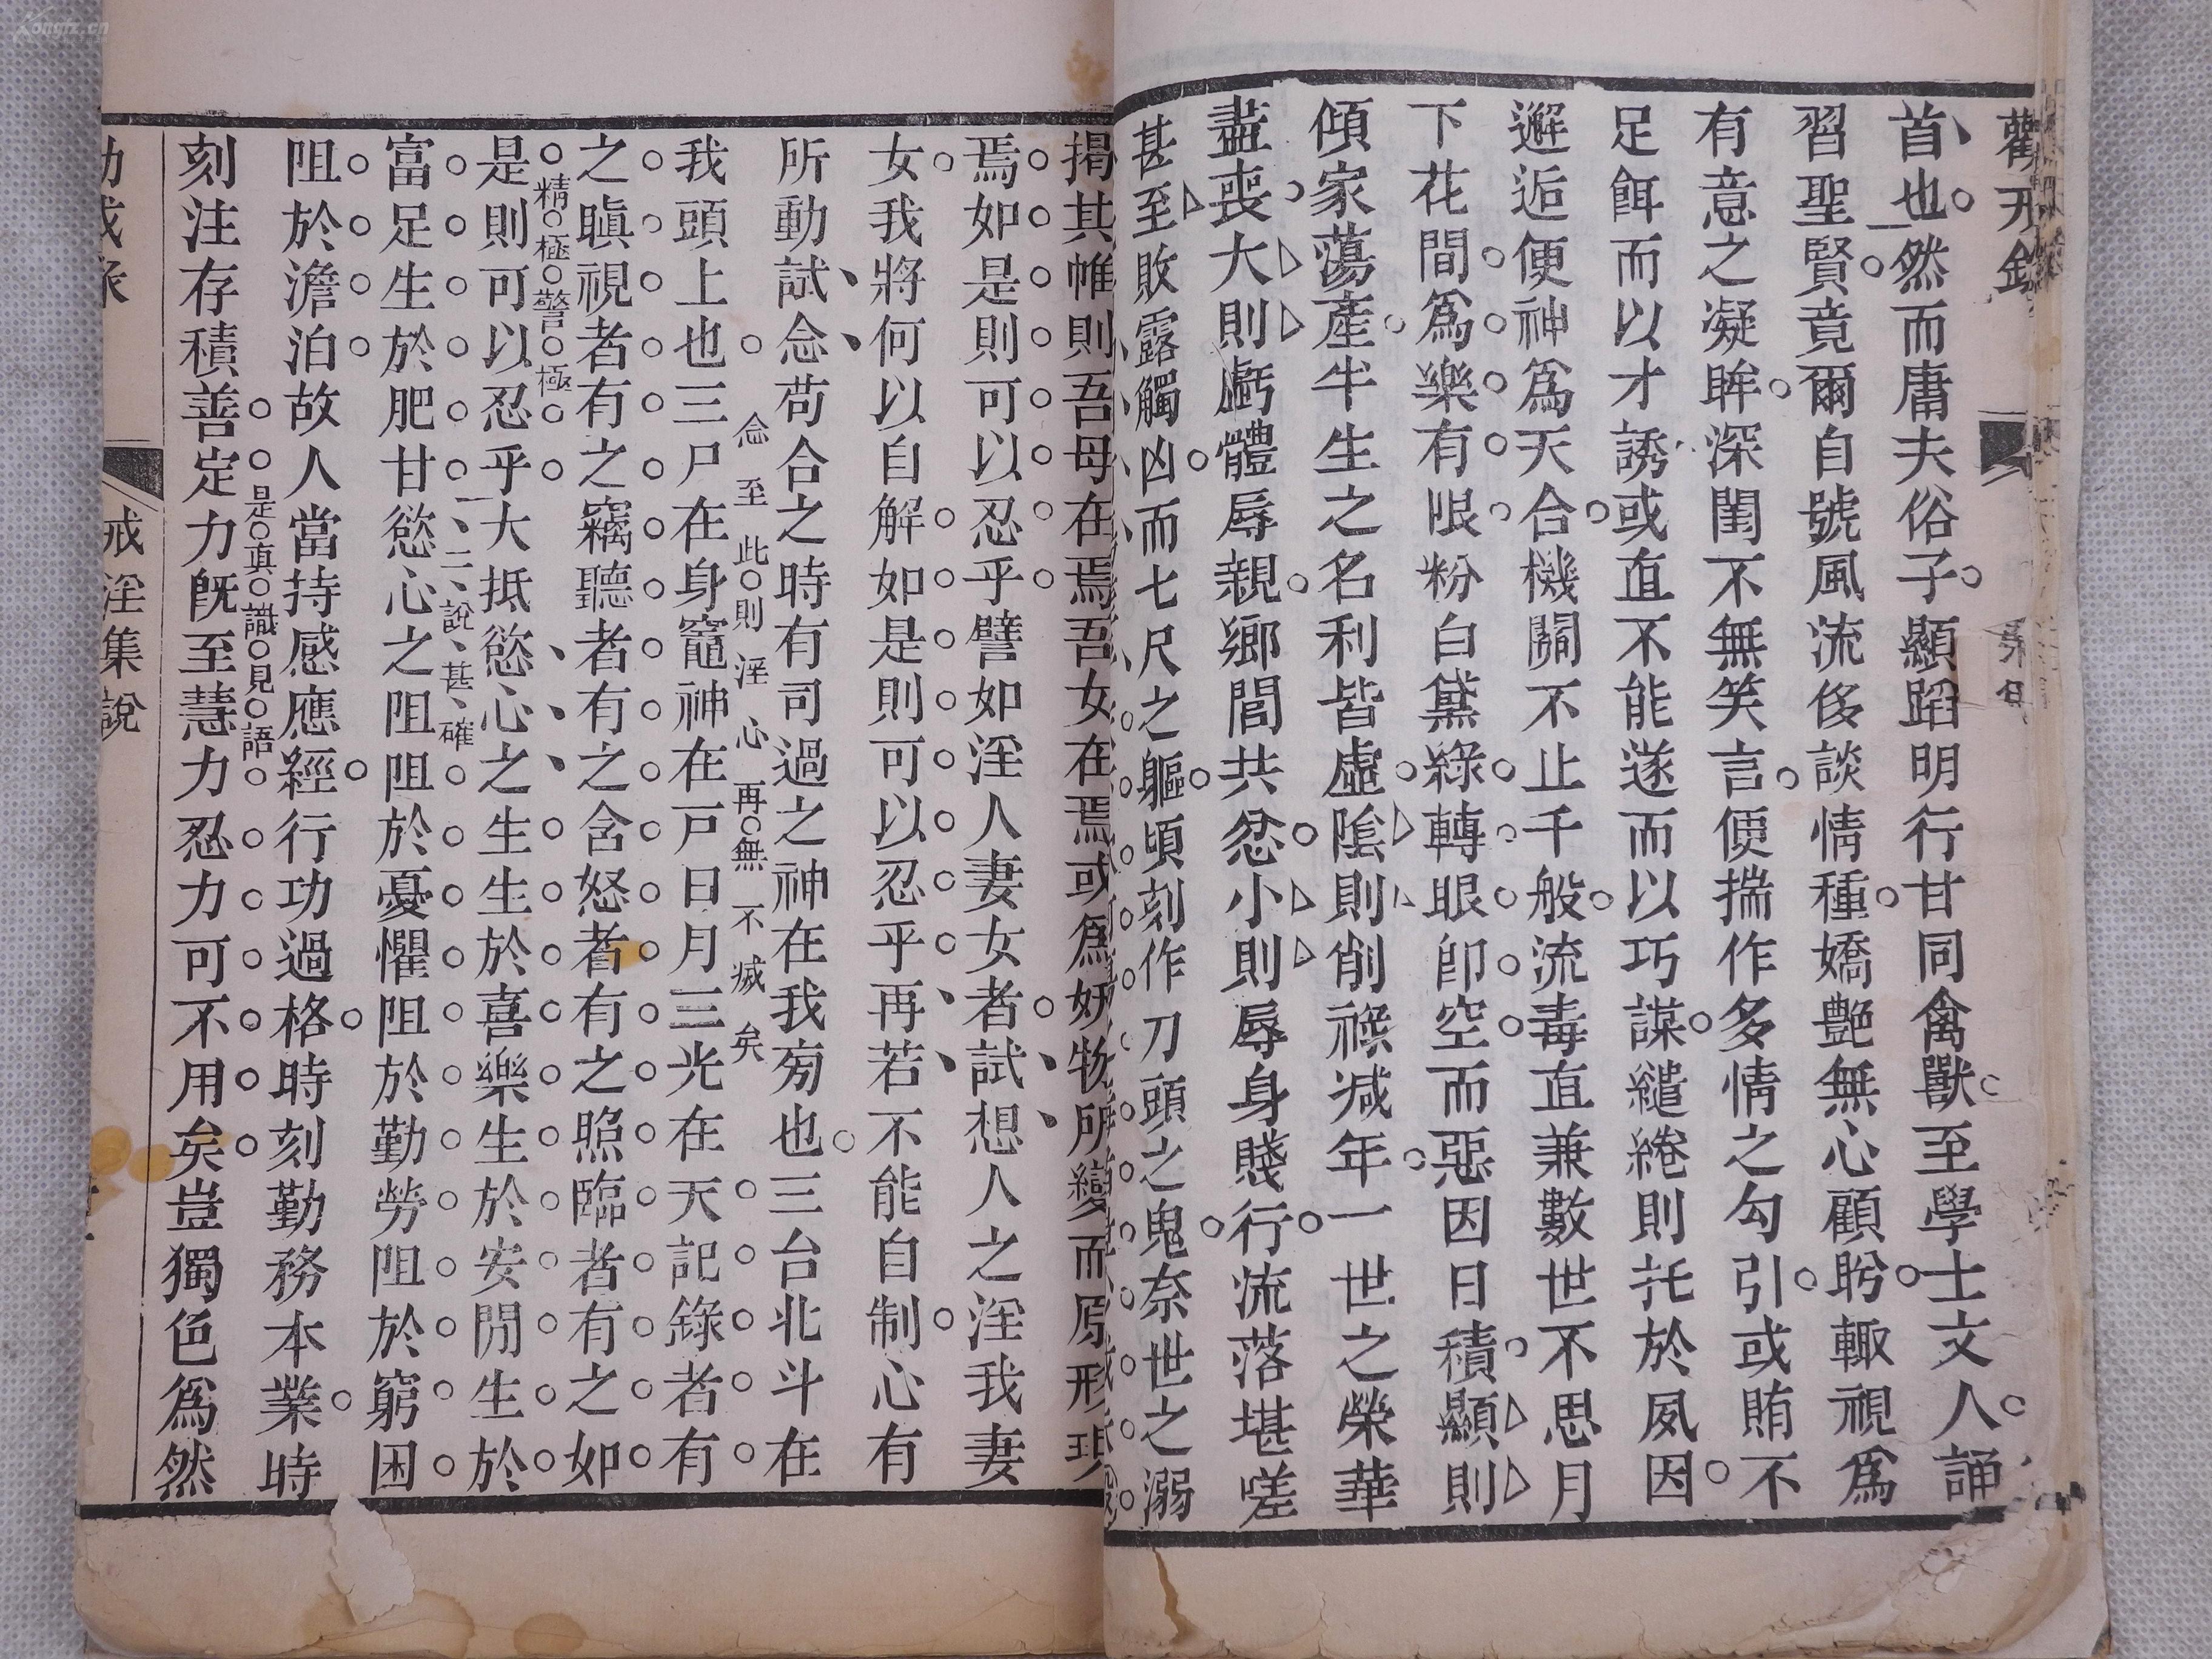 首也然而庸夫俗子顯蹈明行甘同禽獸至學士文人誦
習聖賢竟爾自號風流侈談情種嬌艷無心顧盻輙視爲
有意之凝眸深閨不無笑言便揣作多情之勾引或賄不
足餌而以才誘或直不能遂而以巧謀繾綣則託於夙因
邂逅便神爲天合機關不止千般流毒直兼數世不思月
下花間爲樂有限粉白黛綠轉眼卽空而惡因日積顯則
傾家蕩產半生之名利皆虛陰則削祿減年一世之榮華
盡喪大則虧體辱親鄉閭共忿小則辱身賤行流落堪嗟
甚至敗露觸凶而七尺之軀頃刻作刀頭之鬼奈世之溺
揭其帷則吾母在焉吾女在焉或爲妖物所變而原形現
焉如是則可以忍乎譬如淫人妻女者試想人之淫我妻
女我將何以自解如是則可以忍乎再若不能自制心有
所動試念苟合之時有司過之神在我旁也三台北斗在
念至此則淫心再無不滅矣
我頭上也三尸在身竈神在戶日月三光在天記錄者有
之瞋視者有之竊聽者有之含怒者有之照臨者有之如
精極警極
是則可以忍乎大抵慾心之生生於喜樂生於安閒生於
一二說甚確
富足生於肥甘慾心之阻阻於憂懼阻於勤勞阻於窮困
阻於澹泊故人當持感應經行功過格時刻勤務本業時
是真識見語
刻注存積善定力旣至慧力忍力可不用矣豈獨色爲然
戒淫集說